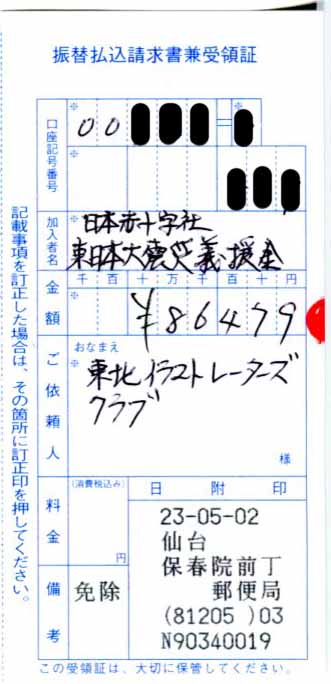 振替払込請求書兼受領証
口座記号番号
※
00
※
※
加入者名
※
日本赤十字社
東日本大震災義援金
金額
千百十万千百十円
※
¥86479
ご依頼人
おなまえ
※
東北イラストレーターズ
クラブ
様
料金
(消費税込み)
円
備考
免除
日附印
23-05-02
仙台
保春院前丁
郵便局
(81205 )03
N90340019
記載事項を訂正した場合は、その箇所に訂正印を押してください。
この受領証は、大切に保管してください。